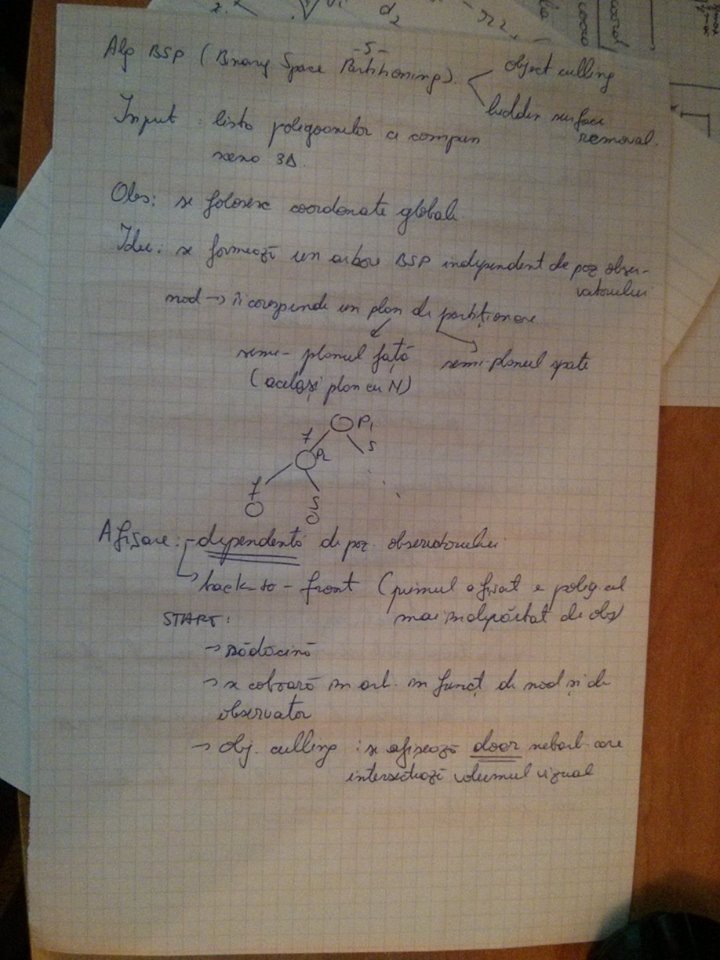 -5-
Alg BSP (Binary Space Partitioning)
object culling
hidden surface
removal.
Input: lista poligoanelor ce compun
scena 3D.
Obs: se folosesc coordonate globale
Idee: se formează un arbore BSP independent de poz obser-
vatorului
nod → îi corespunde un plan de partiționare
semi-planul față
semi-planul spate
(același plan cu N)
P1
f
s
P2
f
s
Afișare: - dependentă de poz. observatorului
back-to-front (primul afișat e polig. cel
mai îndepărtat de obs)
START:
→ rădăcină
→ se coboară în arb. în funcț de nod și de
observator
→ Obj. culling: se afișează doar subarb. care
intersectează volumul vizual
d2